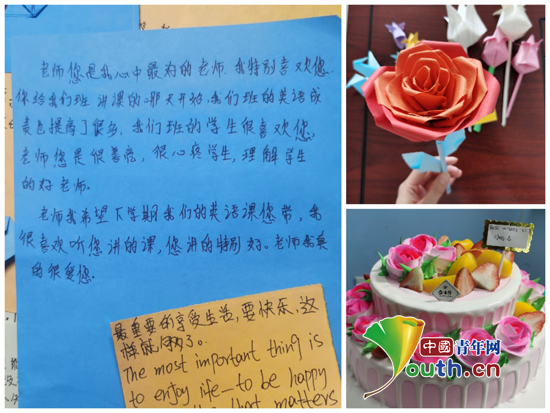 老师您是我心中最好的老师.我特别喜欢您.
你给我们班讲课的那天开始,我们班的英语成
绩提高了很多,我们班的学生很喜欢您.
老师您是很善良,很心疼学生,理解学生
的好老师。
老师我希望下学期我们的英语课您带,我
很喜欢听您讲的课,您讲的特别好。老师我真
的很爱您.
最重要的享受生活,要快乐,这
样就够了。
The most important thing is
to enjoy life—to be happy
that matters
中國青年网
youth.cn